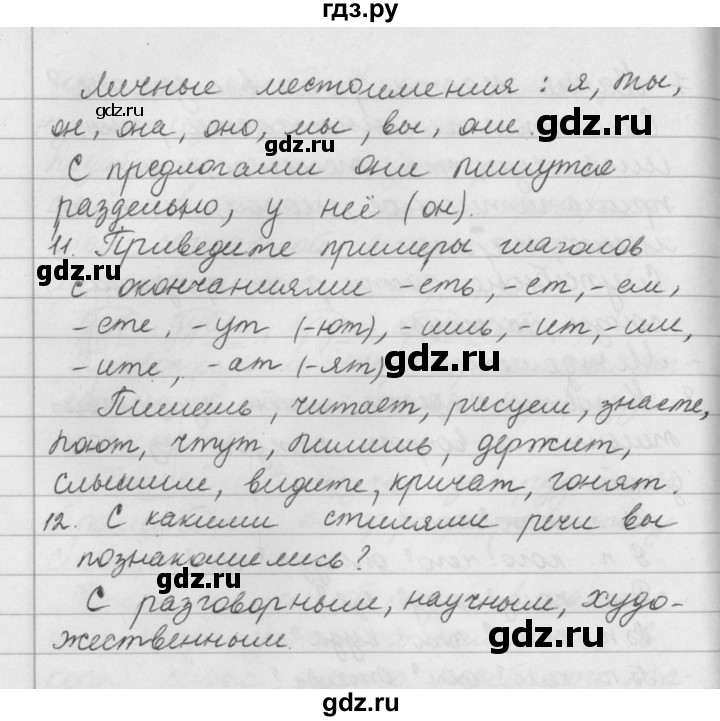 гдз.ру
Личные местоимения : я, ты,
gdz.ru
он, она, оно, мы, вы, они.
gdz.ru
С предлогами они пишутся
раздельно, у неё (он).
gdz.ru
11. Приведите примеры глаголов
с окончаниями -еть, -ет, -ем,
gdz.ru
-ете, -ут (-ют), -ишь, -ит, -им,
-ите, -ат (-ят)
gdz.ru
Пишешь, читает, рисуем, знаете,
поют, чтут, пилишь, держит,
gdz.ru
слышим, видите, кричат, гонят.
12. С какими стилями речи вы
gdz.ru
познакомились?
gdz.ru
С разговорным, научным, худо-
gdz.ru
жественным.
gdz.ru
gdz.ru